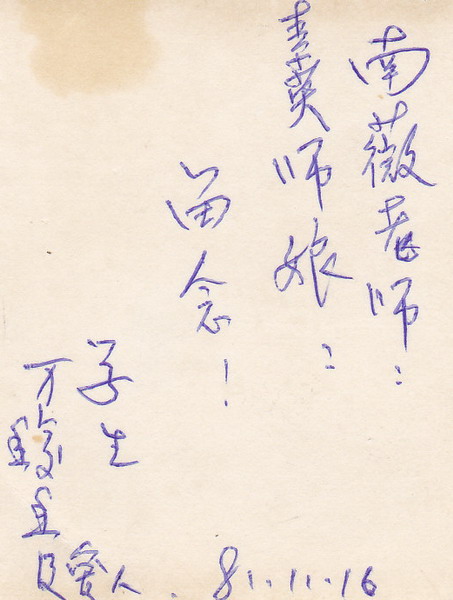 南薇老师：
英师娘：
留念！
学生
万
人
81.11.16